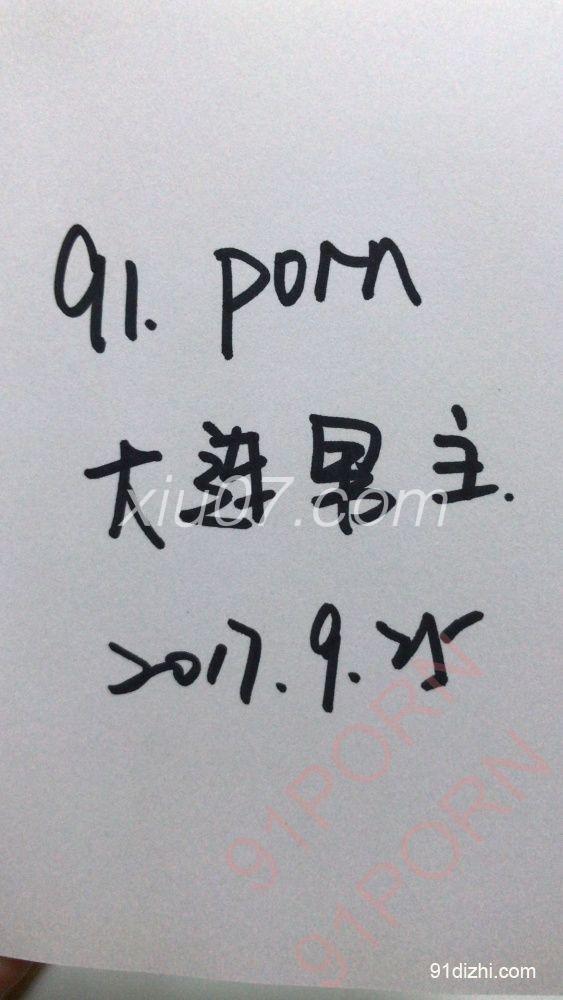 91. porn
大连黑主.
xiu07.com
2017.9.25
91PORN
91PORN
91dizhi.com